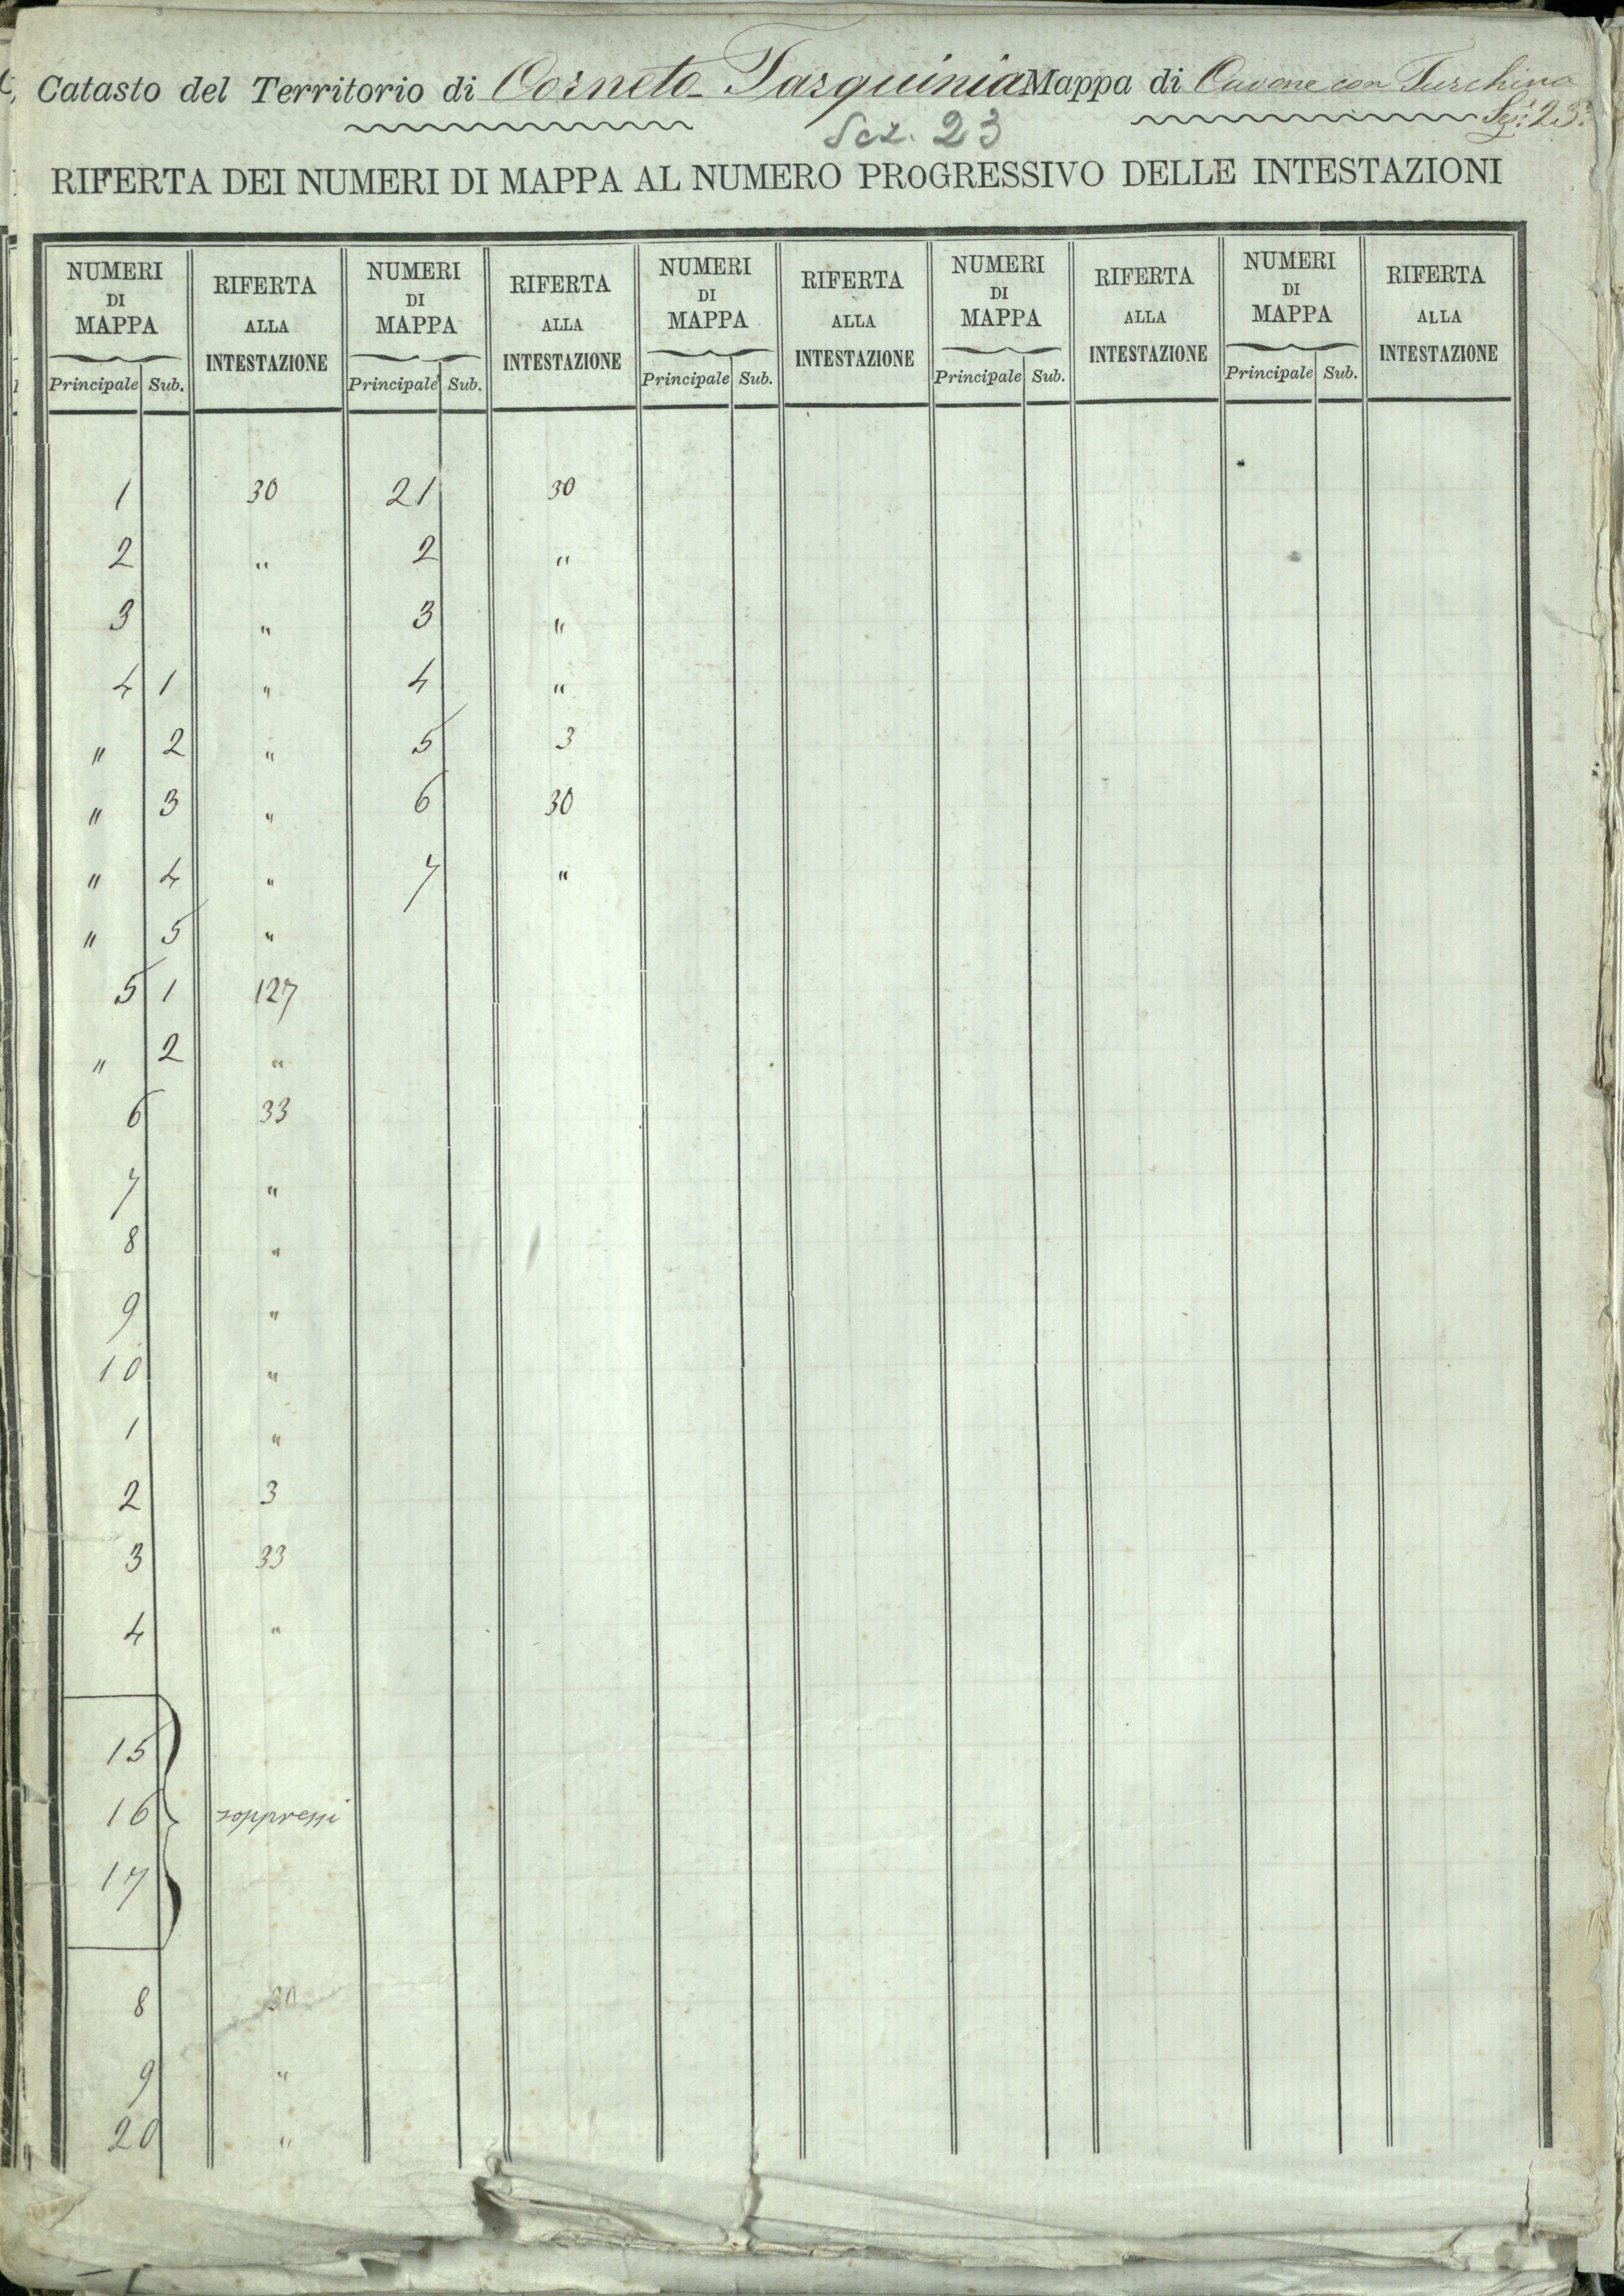 Catasto del Territorio di Corneto Tarquinia Mappa di Cavone con Turchina
Sez. 23 Sez: 23ª
RIFERTA DEI NUMERI DI MAPPA AL NUMERO PROGRESSIVO DELLE INTESTAZIONI
NUMERI DI MAPPA RIFERTA ALLA INTESTAZIONE NUMERI DI MAPPA RIFERTA ALLA INTESTAZIONE NUMERI DI MAPPA RIFERTA ALLA INTESTAZIONE NUMERI DI MAPPA RIFERTA ALLA INTESTAZIONE NUMERI DI MAPPA RIFERTA ALLA INTESTAZIONE
Principale Sub. Principale Sub. Principale Sub. Principale Sub. Principale Sub.
1 30 21 30
2 " 2 "
3 " 3 "
4 1 " 4 "
" 2 " 5 3
" 3 " 6 30
" 4 " 7 "
" 5 "
5 1 127
" 2 "
6 33
7 "
8 "
9 "
10 "
1 "
2 3
3 33
4 "
15
16 soppressi
17
8 30
9 "
20 "